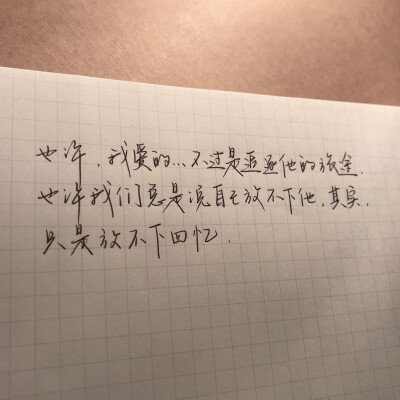 也许，我爱的…不过是追逐他的旅途.
也许我们总是说自己放不下他，其实，
只是放不下回忆.